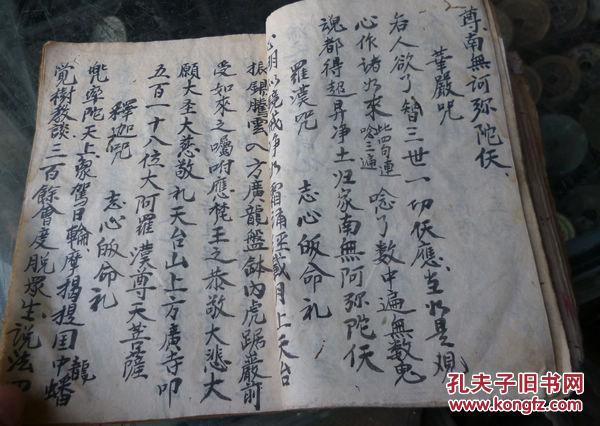 尊南無阿弥陀仸
華嚴咒
若人欲了智三世一切仸應当如是观
心作諸如來此四句連唸三遍唸了数中遍無数鬼
魂都得超昇净土归家南無阿弥陀仸
羅漢咒
志心皈命礼
月上天台
振錫騰雲入方廣龍盤缽內虎踞嚴前
受如來之囑咐應梵王之恭敬大悲大
願大圣大慈敬礼天台山上方廣寺叩
五百一十八位大阿羅漢尊天菩薩
釋迦咒
志心皈命礼
兠率陀天上象駕日輪摩揭提囯中龍蟠
覺樹教談三百餘會度脱眾生说法
孔夫子旧书网
www.kongfz.com